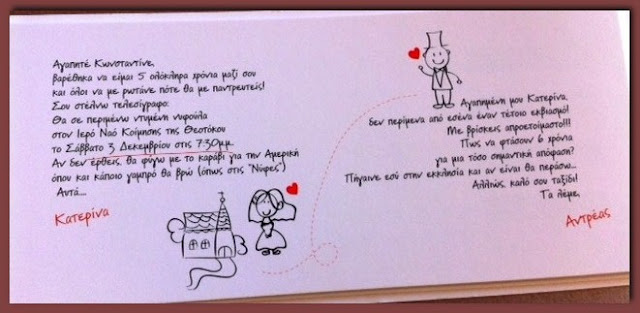 Αγαπητέ Κωνσταντίνε,
βαρέθηκα να είμαι 5 ολόκληρα χρόνια μαζί σου
και όλοι να με ρωτάνε πότε θα με παντρευτείς!
Σου στέλνω τελεσίγραφο:
Θα σε περιμένω ντυμένη νυφούλα
στον Ιερό Ναό Κοίμησης της Θεοτόκου
το Σάββατο 3 Δεκεμβρίου στις 7:30μμ.
Αν δεν έρθεις, θα φύγω με το καράβι για την Αμερική
όπου και κάποιο γαμπρό θα βρώ (όπως στις "Νύφες")
Αυτά...
Κατερίνα
Αγαπημένη μου Κατερίνα,
δεν περίμενα από εσένα έναν τέτοιο εκβιασμό!
Με βρίσκεις απροετοίμαστο!!!
Πως να φτάσουν 6 χρόνια
για μια τόσο σημαντική απόφαση?
Πήγαινε εσύ στην εκκλησία και αν είναι θα περάσω...
Αλλιώς, καλό σου ταξίδι!
Τα λέμε,
Αντρέας